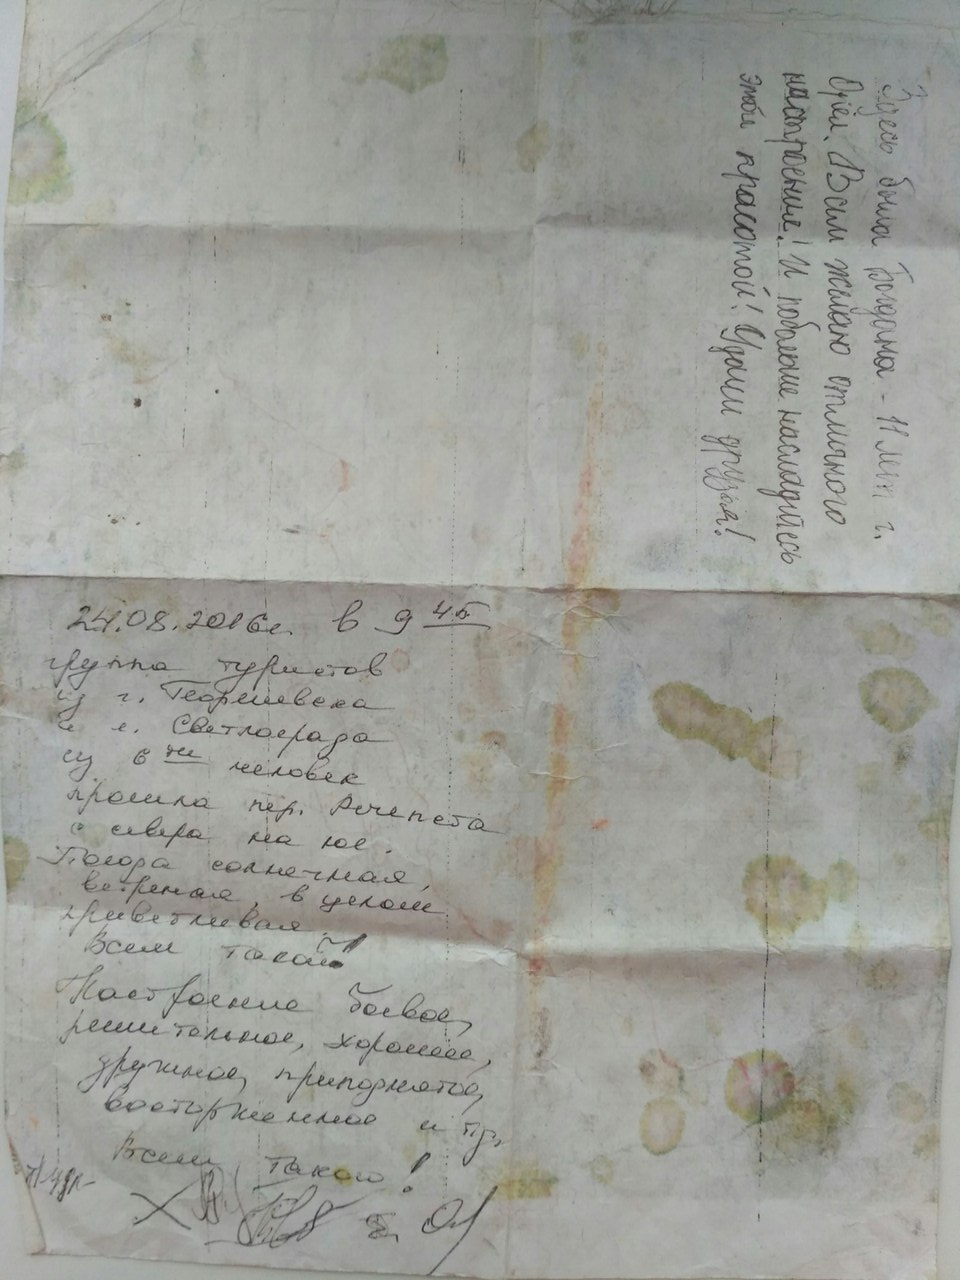 Здесь была Богдана - 11 лет г.
Орёл. Всем желаю отличного
настроения! И побольше насладитесь
этой красотой! Удачи друзья!
24.08.2016г. в 9 45
группа туристов
из г. Георгиевска
и г. Светлограда
из 6 ти человек
прошла пер. Речепста
с севера на юг.
Погода солнечная,
ветреная, в целом
приветливая.
Всем такой!
Настроение боевое,
решительное, хорошее,
дружное, приподнятое,
восторженное и пр.
Всем такого!